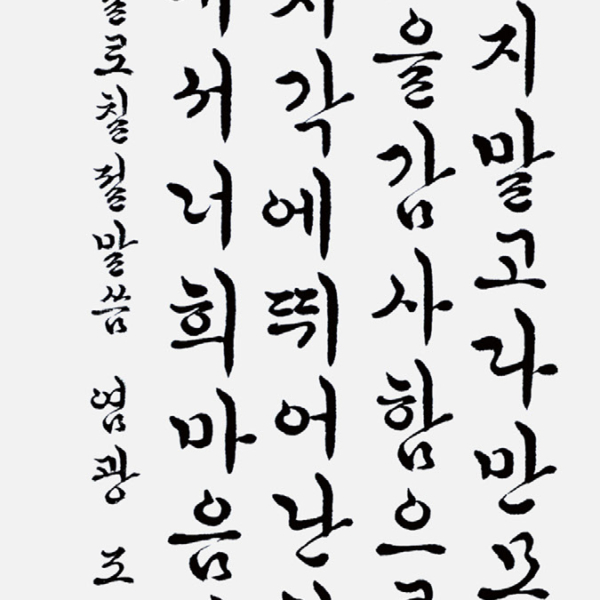 지말고다만모
을감사함으
각에뛰어난
서너희마음
로칠절말씀 염광 조